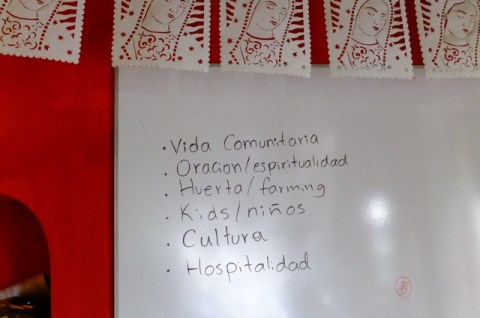 · Vida Comunitaria
· Oracion/espiritualidad
· Huerta/farming
· Kids/niños
· Cultura
· Hospitalidad